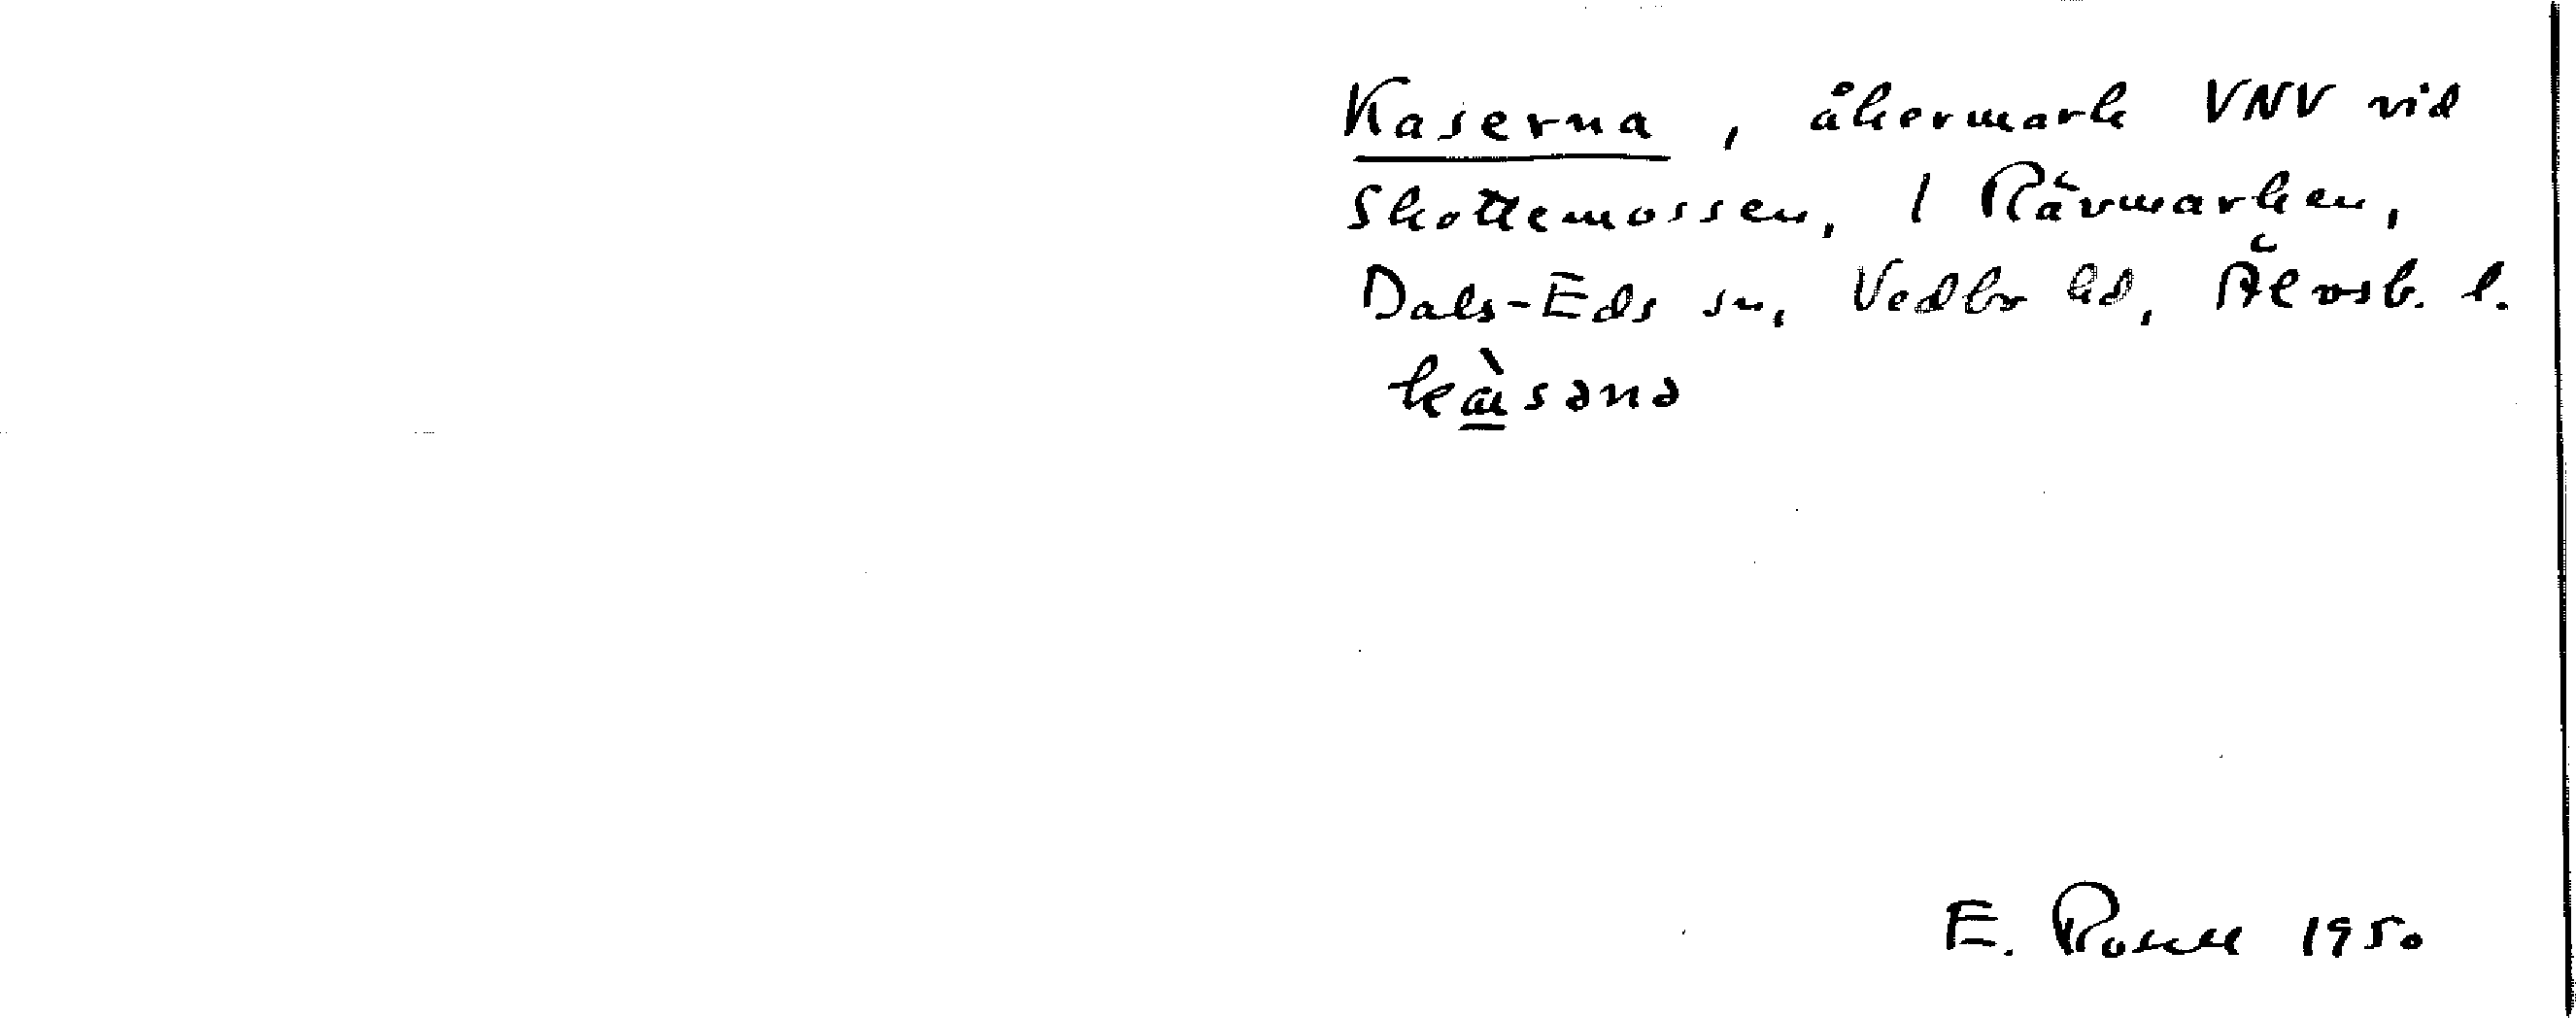 Kaserna, åkermark VNV vid
Skottemossen, 1 Rävmarken,
Dals-Eds sn, Vedbo hd, Älvsb. l.
kàsənə
E. Rosell 1950